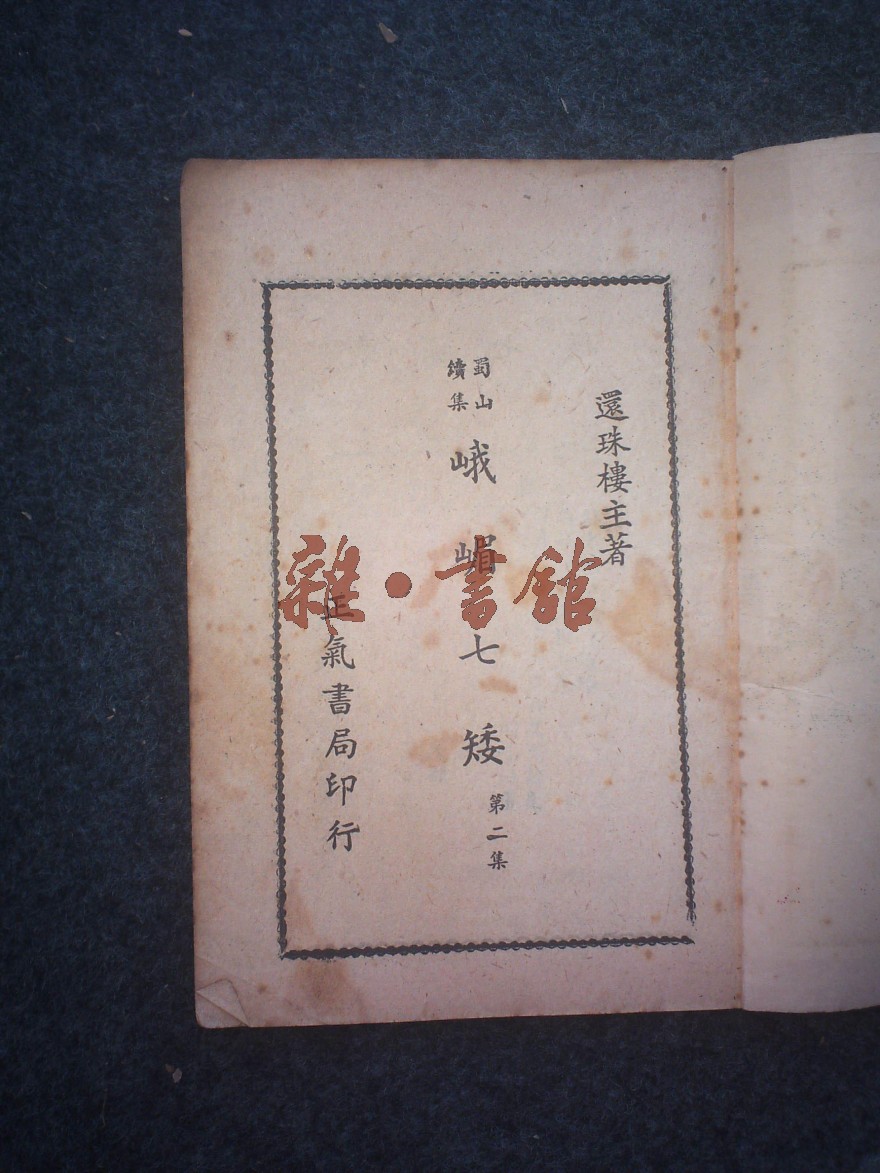 還珠樓主著
蜀山
續集
峨嵋七矮
第二集
正氣書局印行
雜·書館